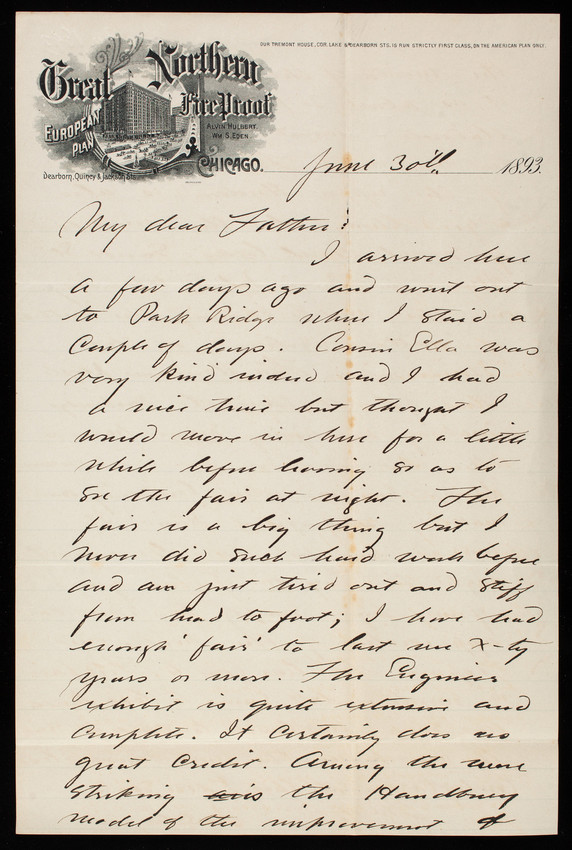 OUR TREMONT HOUSE, COR. LAKE & DEARBORN STS. IS RUN STRICTLY FIRST CLASS, ON THE AMERICAN PLAN ONLY.
Great Northern
Fire Proof
EUROPEAN PLAN
ALVIN HULBERT.
WM S. EDEN.
CHICAGO. June 30th 1893.
Dearborn, Quincy & Jackson Sts.
My dear Father:
I arrived here
a few days ago and went out
to Park Ridge where I staid a
couple of days. Cousin Ella was
very kind indeed and I had
a nice time but thought I
would move in here for a little
while before leaving so as to
see the fair at night. The
fair is a big thing but I
never did such hard work before
and am just tired out and stiff
from head to foot; I have had
enough 'fair' to last me X-ty
years or more. The Engineer
exhibit is quite extensive and
complete. It certainly does us
great credit. Among the more
striking is the Handbury
model of the improvement of